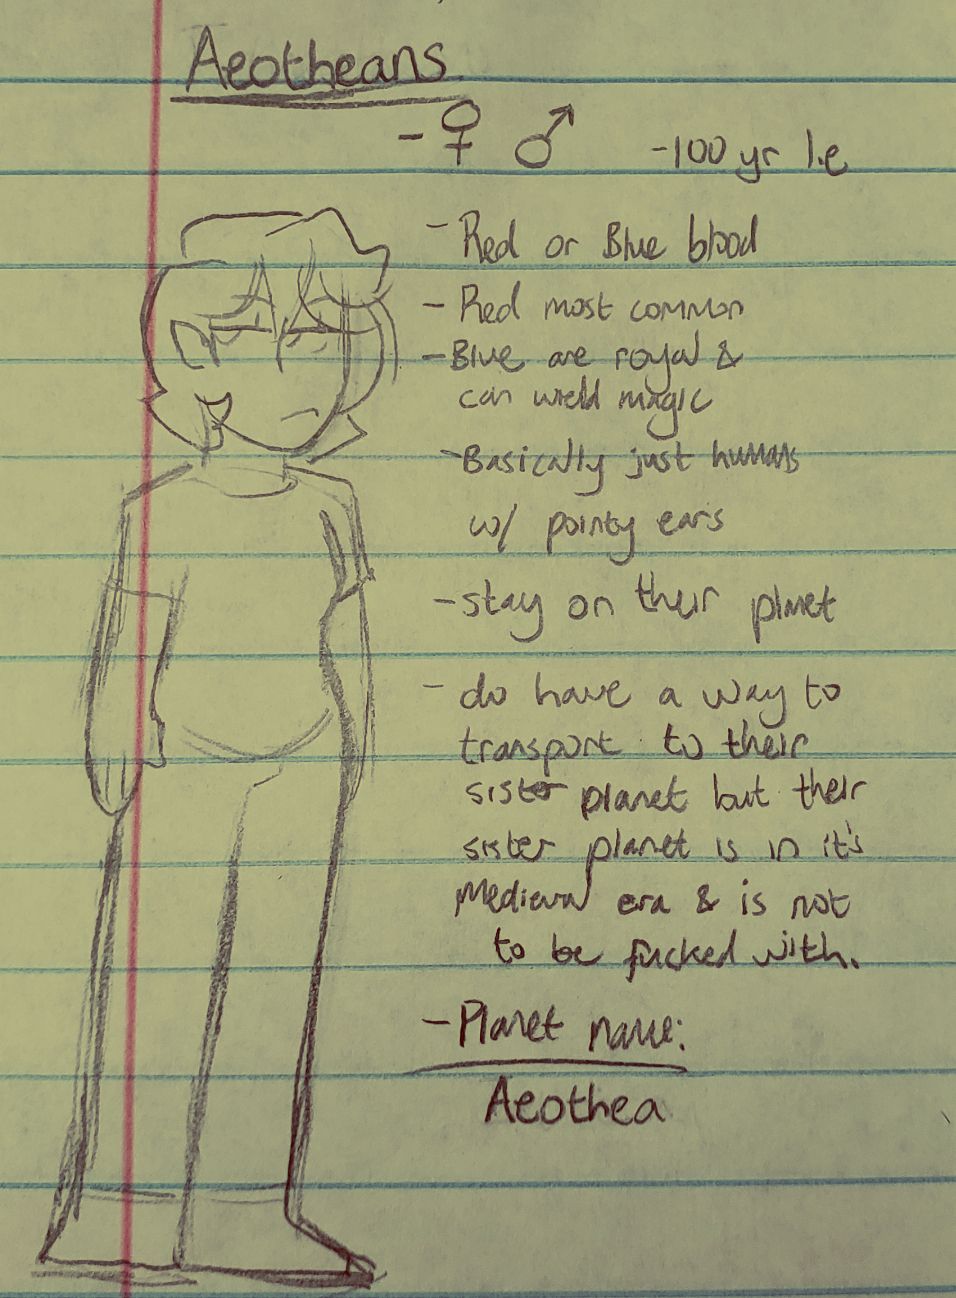 Aeotheans
- ♀ ♂ -100 yr l.e
- Red or Blue blood
- Red most common
- Blue are royal &
can wield magic
- Basically just humans
w/ pointy ears
- stay on their planet
- do have a way to
transport to their
sister planet but their
sister planet is in it's
Medieval era & is not
to be fucked with.
- Planet name:
Aeothea